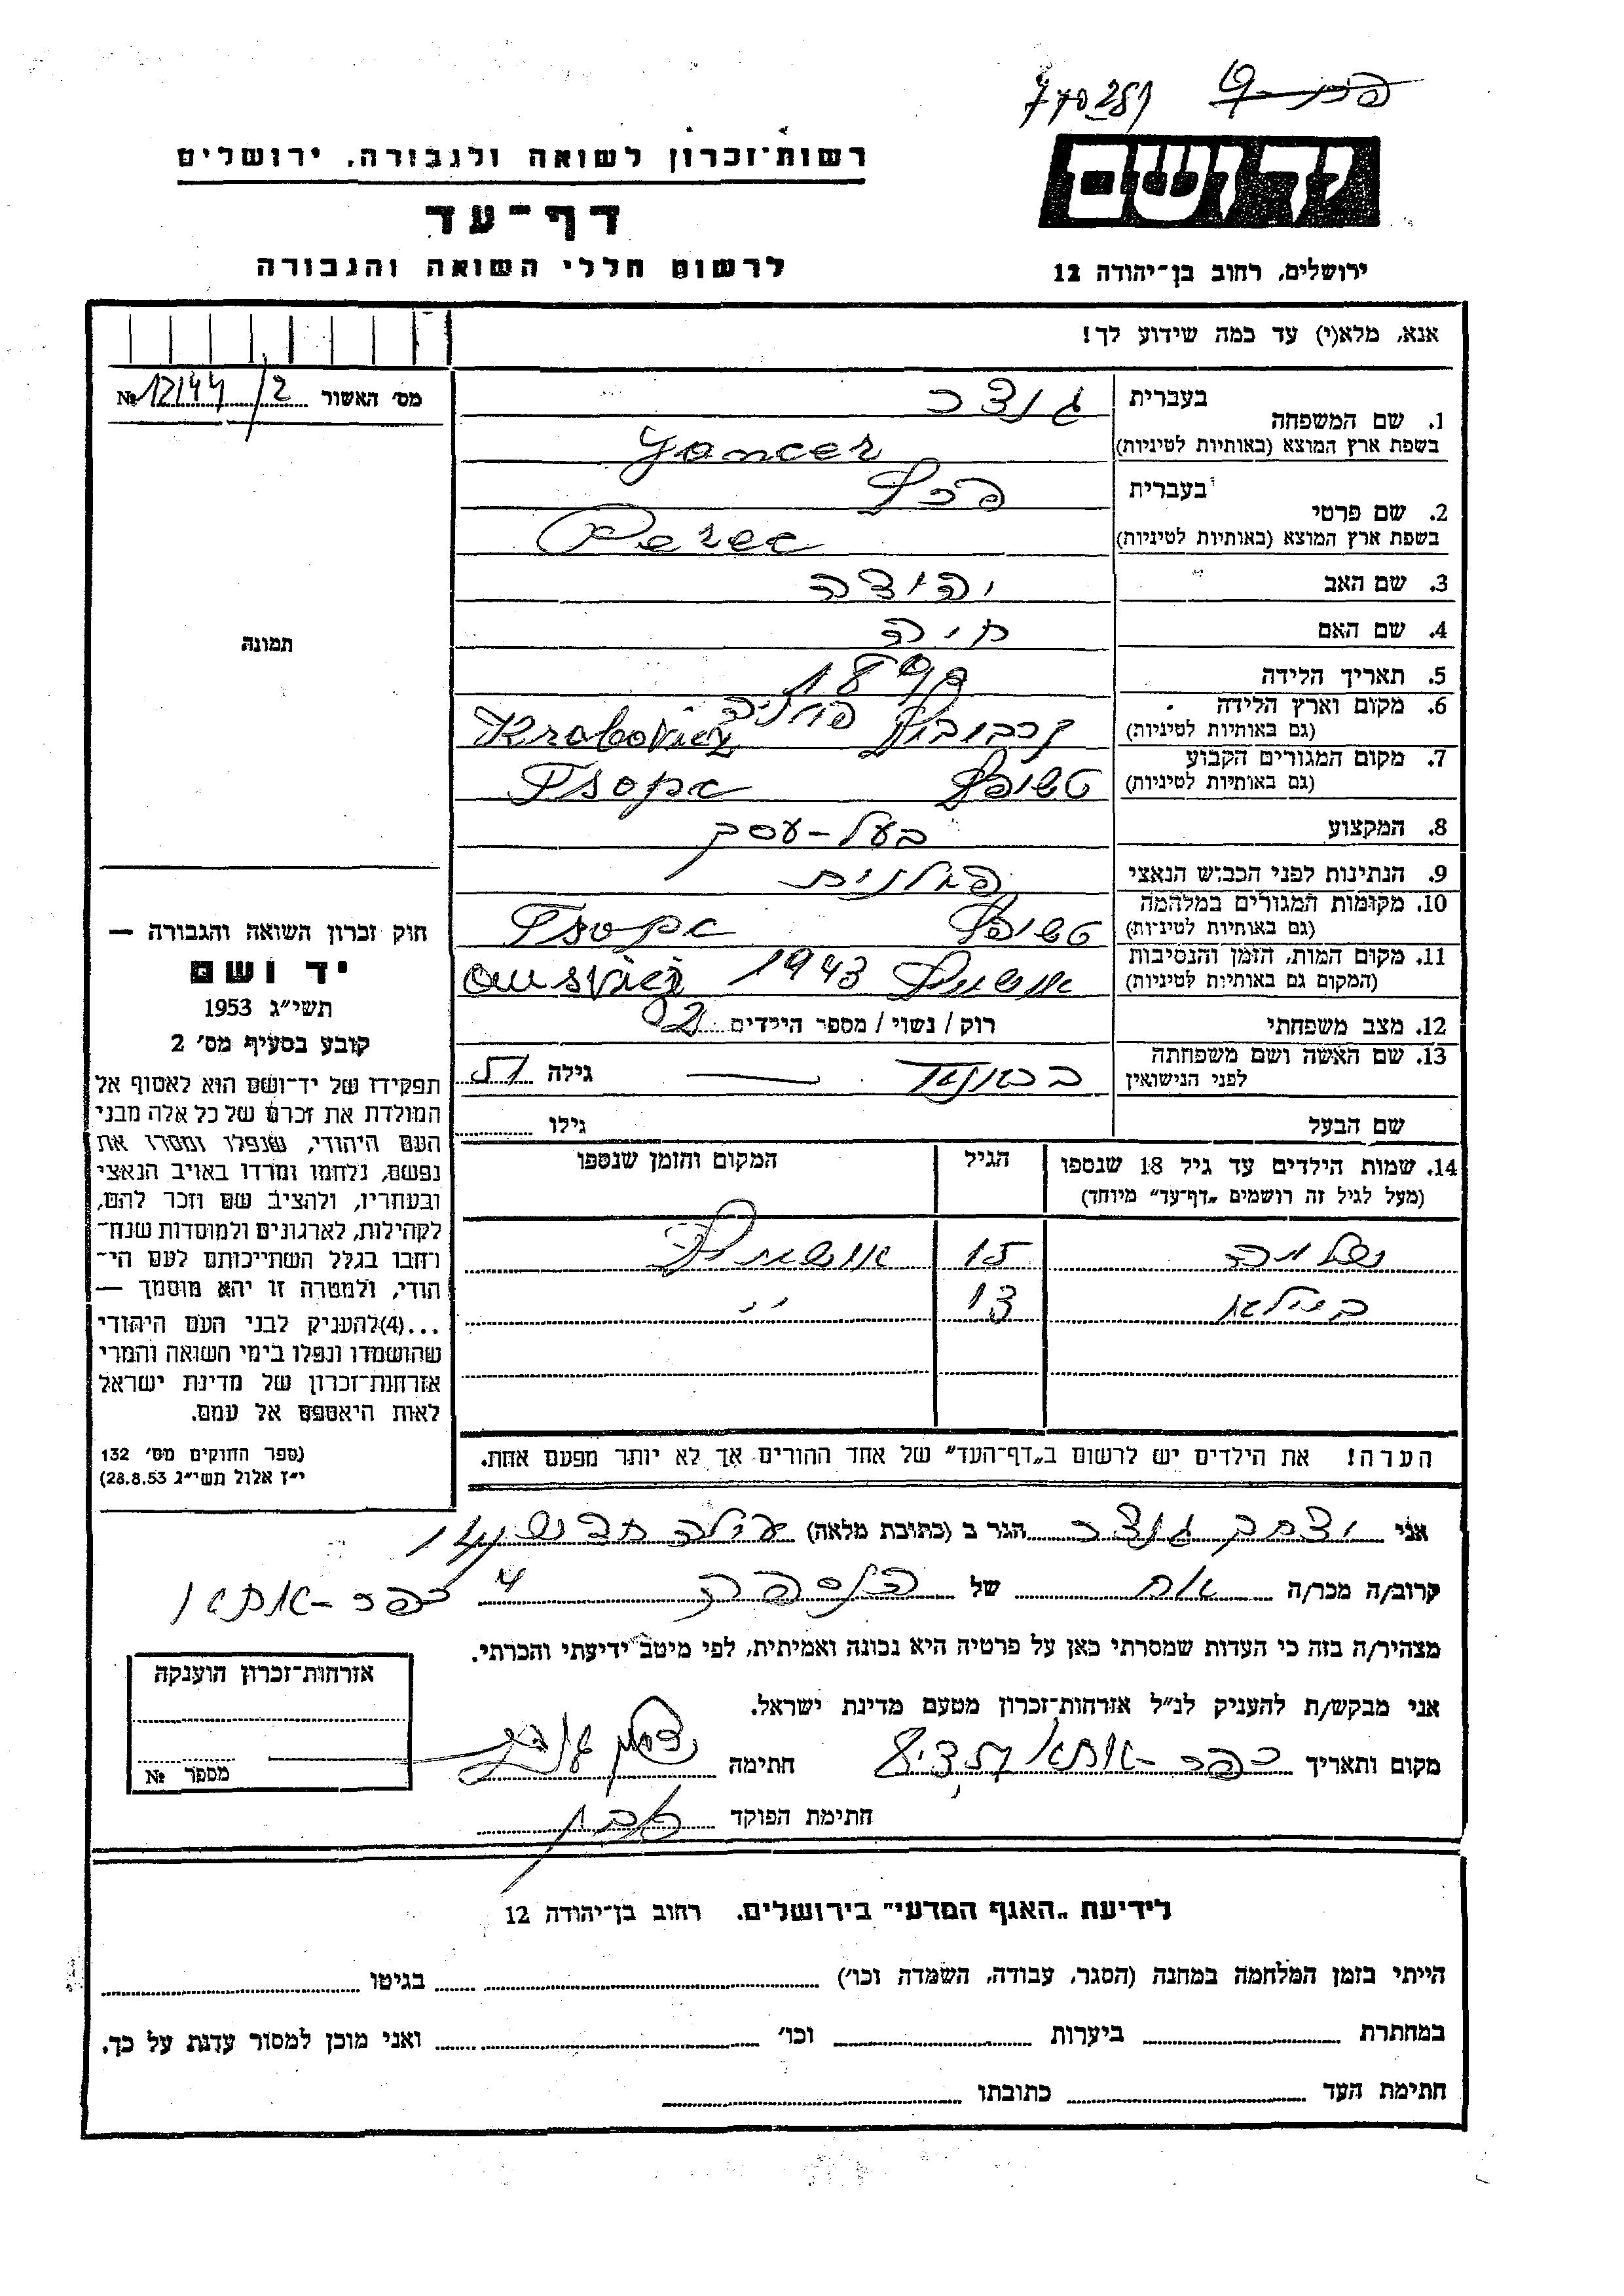 רשות־זכרון לשואה ולגבורה. ירושלים
יד ושם
דף־עד
לרשום חללי השואה והגבורה
ירושלים, רחוב בן־יהודה 12
אנא, מלא(י) עד כמה שידוע לך!
מס׳ האשור 12144/2 №
1. שם המשפחה בעברית
בשפת ארץ המוצא (באותיות לטיניות) Goncer
2. שם פרטי בעברית פרץ
בשפת ארץ המוצא (באותיות לטיניות) Perec
3. שם האב יהודה
4. שם האם חיה
5. תאריך הלידה
6. מקום וארץ הלידה
(גם באותיות לטיניות)
7. מקום המגורים הקבוע
(גם באותיות לטיניות)
8. המקצוע בעל-עסק
9. הנתינות לפני הכבוש הנאצי פולנית
10. מקומות המגורים במלחמה
(גם באותיות לטיניות)
11. מקום המות, הזמן והנסיבות 1943
(המקום גם באותיות לטיניות)
12. מצב משפחתי רוק / נשוי / מספר הילדים 2
13. שם האשה ושם משפחתה
לפני הנישואין גילה
שם הבעל גילו
14. שמות הילדים עד גיל 18 שנספו הגיל המקום והזמן שנספו
(מעל לגיל זה רושמים „דף־עד” מיוחד)
15
ביילא 13
הערה! את הילדים יש לרשום ב„דף־העד” של אחד ההורים אך לא יותר מפעם אחת.
תמונה
חוק זכרון השואה והגבורה —
יד ושם
תשי״ג 1953
קובע בסעיף מס׳ 2
תפקידו של יד־ושם הוא לאסוף אל
המולדת את זכרם של כל אלה מבני
העם היהודי, שנפלו ומסרו את
נפשם, נלחמו ומרדו באויב הנאצי
ובעוזריו, ולהציב שם וזכר להם,
לקהילות, לארגונים ולמוסדות שנח־
רחבו בגלל השתייכותם לעם הי־
הודי, ולמטרה זו יהא מוסמך —
...(4)להעניק לבני העם היהודי
שהושמדו ונפלו בימי השואה והמרי
אזרחות־זכרון של מדינת ישראל
לאות היאספם אל עמם.
(ספר החוקים מס׳ 132
י״ז אלול תשי״ג 28.8.53)
אני יצחק גונצר הגר ב (כתובת מלאה)
קרוב/ה מכר/ה אח של הנספה כפר-אתא
מצהיר/ה בזה כי העדות שמסרתי כאן על פרטיה היא נכונה ואמיתית, לפי מיטב ידיעתי והכרתי.
אני מבקש/ת להעניק לנ״ל אזרחות־זכרון מטעם מדינת ישראל.
מקום ותאריך כפר-אתא חתימה
חתימת הפוקד
אזרחות־זכרון הוענקה
מספר №
לידיעת „האגף המדעי” בירושלים. רחוב בן־יהודה 12
הייתי בזמן המלחמה במחנה (הסגר, עבודה, השמדה וכו׳) בגיטו
במחתרת ביערות וכו׳ ואני מוכן למסור עדות על כך.
חתימת העד כתובתו